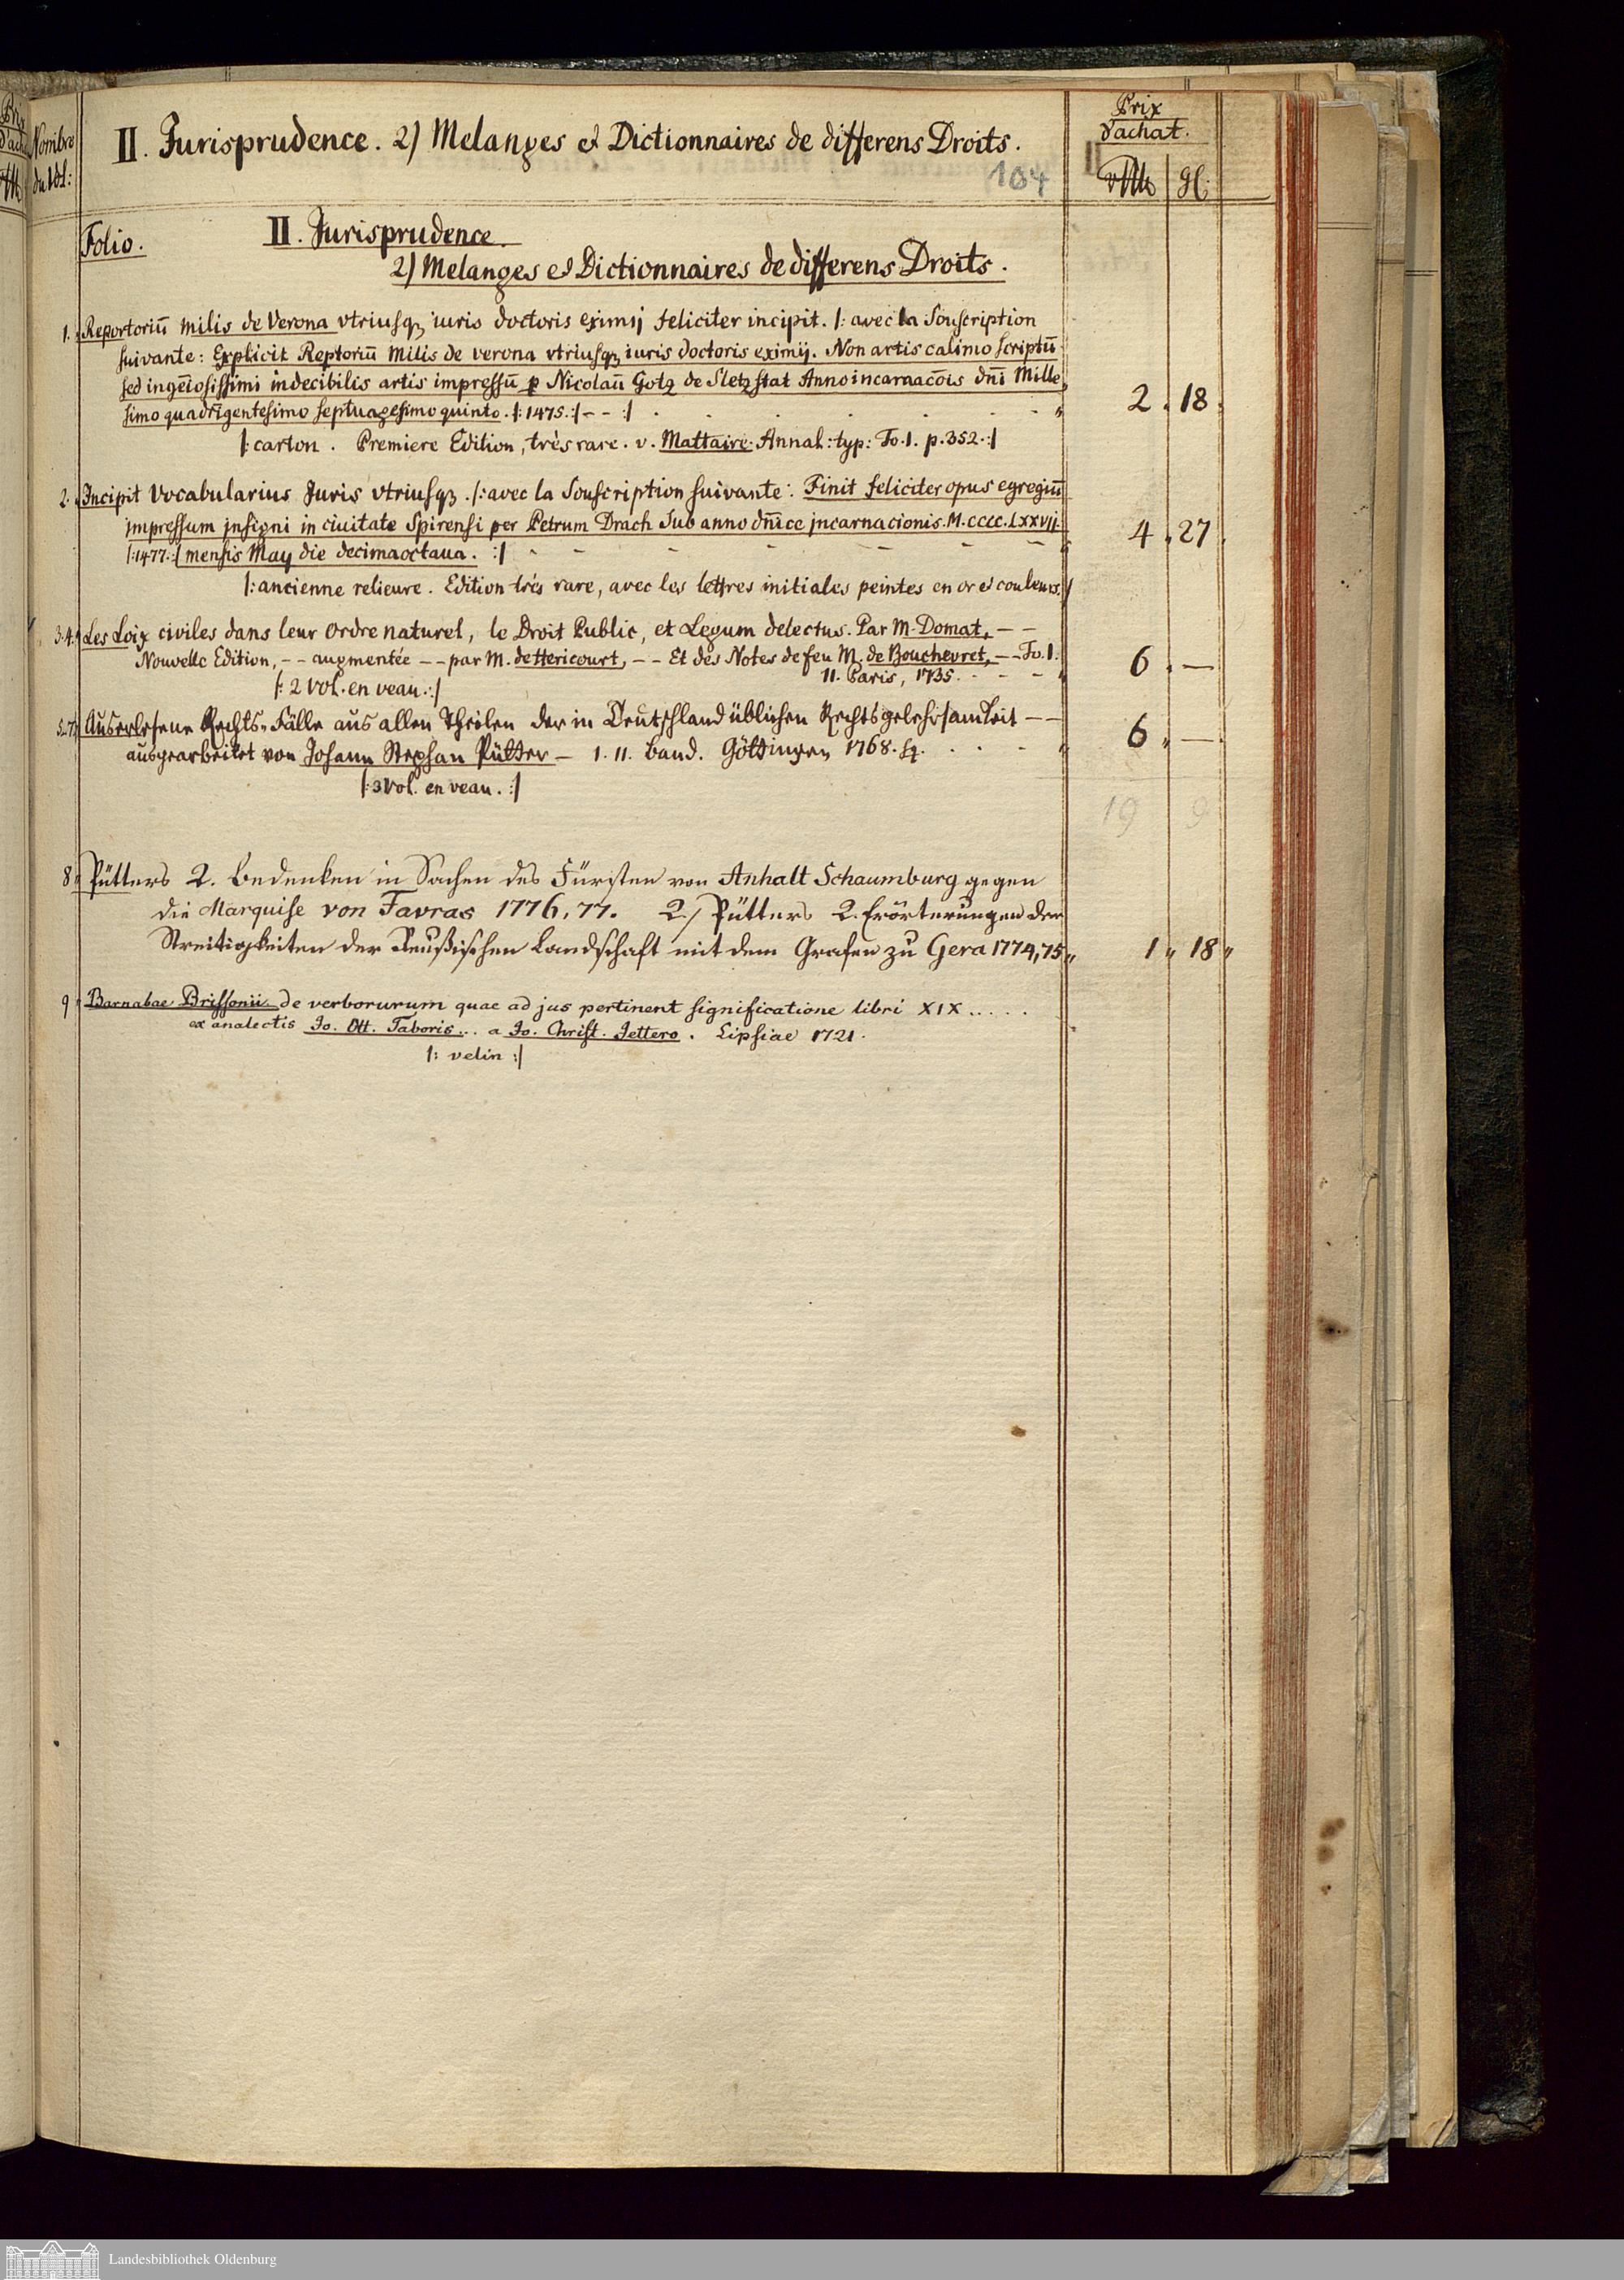 Nombre
du Vol:
II. Jurisprudence. 2) Melanges et Dictionnaires de differens Droits.
104
Prix
d'achat.
gl:
Folio.
II. Jurisprudence.
2) Melanges et Dictionnaires de differens Droits.
1. Reportoriū Milis de Verona vtriusqȝ iuris doctoris eximij feliciter incipit. |: avec la Souscription
suivante: Explicit Reptoriū Milis de verona vtriusqȝ iuris doctoris eximij. Non artis calimo scriptū
sed ingēiosissimi indecibilis artis impressū p Nicolaū Gotz de Sletzstat Anno incarnacōis dnī Mille
simo quadrigentesimo septuagesimo quinto. |: 1475. :| - - :|
2. 18.
|: carton. Premiere Edition, très rare. v. Mattaire Annal: typ: To. 1. p. 352. :|
2. Incipit Vocabularius Juris vtriusqȝ. |: avec la Souscription suivante: Finit feliciter opus egregiū
impressum insigni in ciuitate Spirensi per Petrum Drach Sub anno dn̄ice jncarnacionis. M.cccc.Lxxvij
|: 1477. :| mensis May die decimaoctaua. :|
4. 27.
|: ancienne relieure. Edition très rare, avec les lettres initiales peintes en or et couleurs. :|
3. 4. Les Loix civiles dans leur Ordre naturel, le Droit Public, et Legum delectus. Par M. Domat, - -
Nouvelle Edition, - - augmentée - - par M. de Hericourt, - - Et des Notes de feu M. de Bouchevret, - - To. 1.
11. Paris, 1735.
6. —
|: 2 Vol. en veau. :|
5.-7. Auserlesene Rechts-Fälle aus allen Theilen der in Deutschland üblichen Rechtsgelehrsamkeit - -
ausgearbeitet von Johann Stephan Pütter - 1. 11. Band. Göttingen 1768. sq.
6. —
|: 3 Vol. en veau. :|
19 9
8 Pütters 2. Bedenken in Sachen des Fürsten von Anhalt Schaumburg gegen
die Marquise von Favras 1776, 77. 2.) Pütters 2. Erörterungen der
Streitigkeiten der Reußischen Landschaft mit dem Grafen zu Gera 1774, 75
1 18
9 Barnabae Brissonii de verborurum quae ad jus pertinent significatione libri XIX.....
ex analectis Jo. Ott. Taboris... a Jo. Christ. Jettero. Lipsiae 1721.
|: velin :|
Landesbibliothek Oldenburg